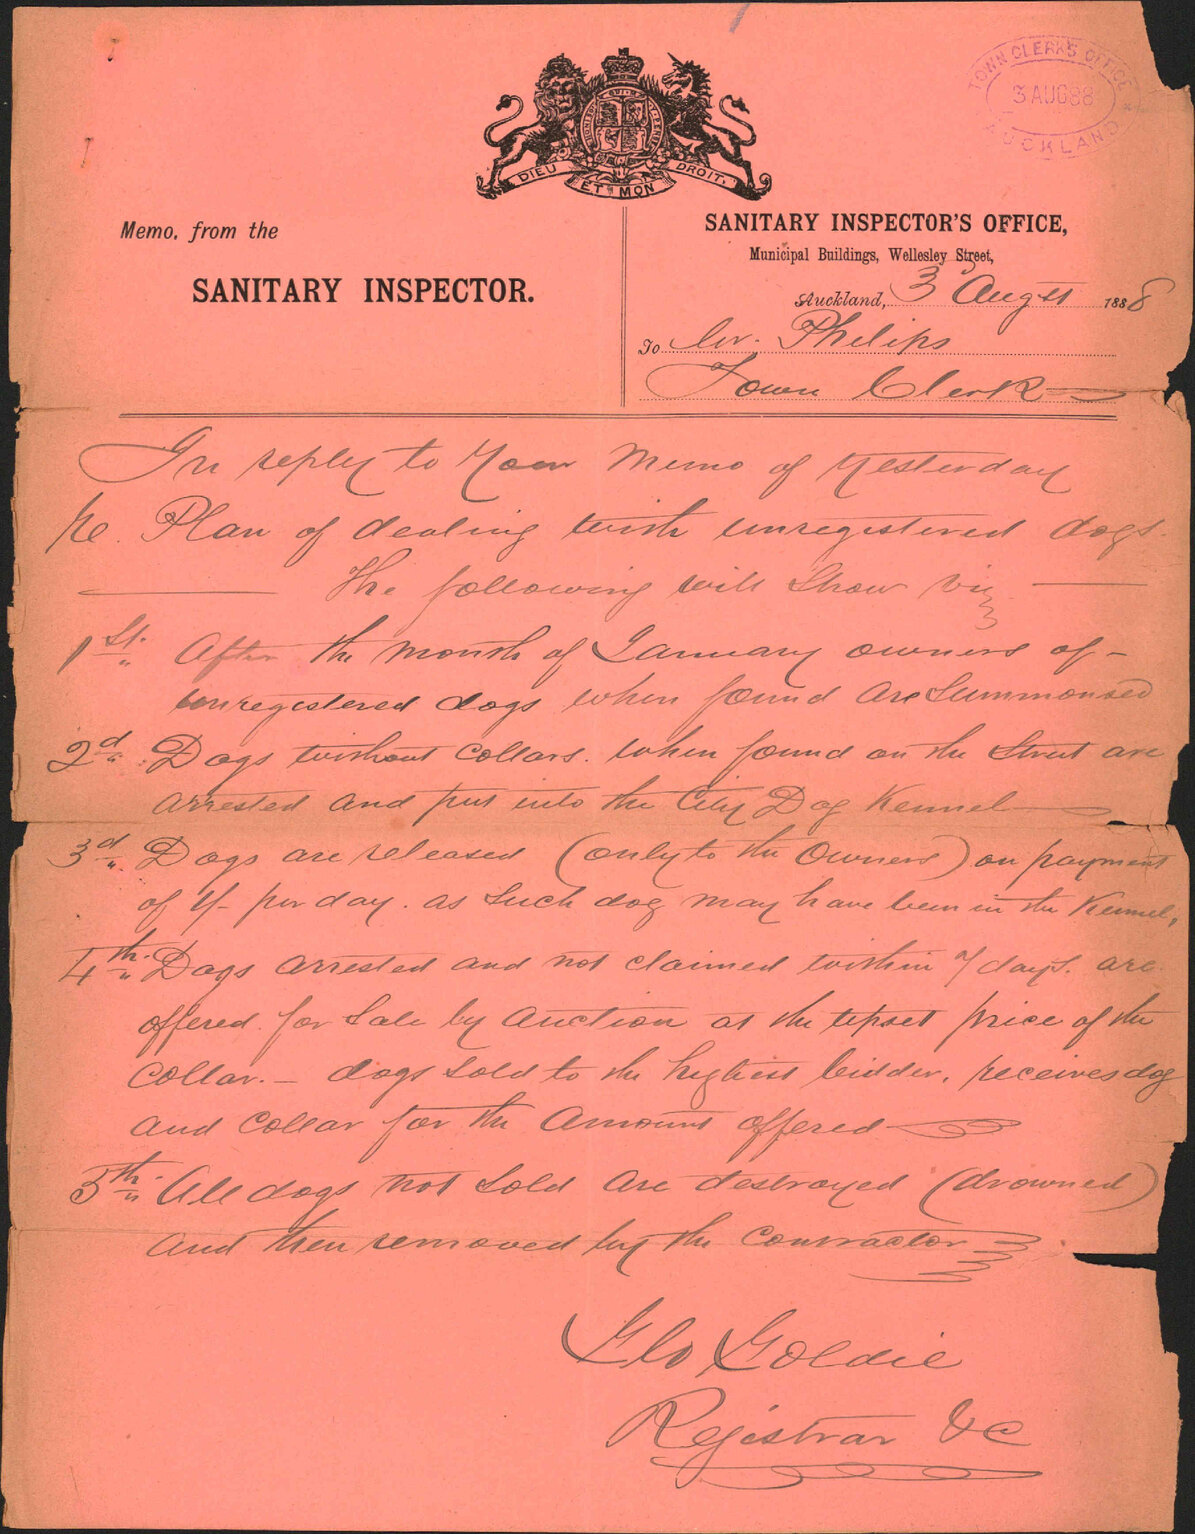 TOWN CLERK'S OFFICE
3 AUG 88
AUCKLAND
DIEU ET MON DROIT.
Memo. from the
SANITARY INSPECTOR.
SANITARY INSPECTOR'S OFFICE,
Municipal Buildings, Wellesley Street,
Auckland, 3 Augst 1888
To Mr. Philips
Town Clerk
In reply to Your Memo of Yesterday
re. Plan of dealing with unregistered dogs.
The following will Show viz
1st. After the month of January owners of
unregistered dogs when found are Summonsed
2d Dogs without Collars. when found on the Street are
arrested and put into the City Dog Kennel
3d Dogs are released (only to the Owners) on payment
of 1/- per day. as Such dog may have been in the Kennel,
4th. Dogs arrested and not claimed within 7 days. are
offered. for Sale by Auction at the upset price of the
Collar. — dogs Sold to the highest bidder. receives dog
and Collar for the Amount offered
5th. All dogs not Sold are destroyed (drowned)
and then removed by the Contractor
Geo Goldie
Registrar &c